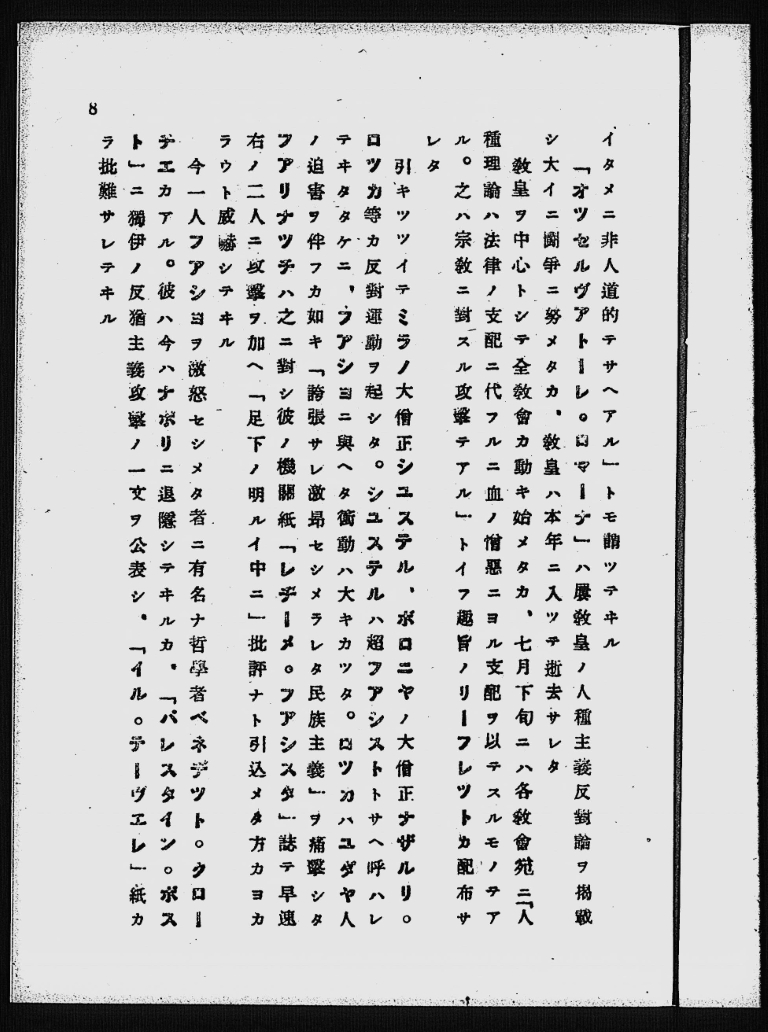 イタメニ非人道的テサヘアル」トモ謂ツテヰル
「オツセルヴアトーレ。ロマーナ」ハ屢敎皇ノ人種主義反對論ヲ揭載
シ大イニ鬪爭ニ努メタカ、敎皇ハ本年ニ入ツテ逝去サレタ
敎皇ヲ中心トシテ全敎會カ動キ始メタカ、七月下旬ニハ各敎會宛ニ「人
種理論ハ法律ノ支配ニ代フルニ血ノ憎惡ニヨル支配ヲ以テスルモノテア
ル。之ハ宗敎ニ對スル攻擊テアル」トイフ趣旨ノリーフレツトカ配布サ
レタ
引キツツイテミラノ大僧正シユステル、ボロニヤノ大僧正ナザルリ。
ロツカ等カ反對運動ヲ起シタ。シユステルハ超フアシストトサヘ呼ハレ
テヰタタケニ、フアシヨニ與ヘタ衝動ハ大キカツタ。ロツカハユダヤ人
ノ迫害ヲ伴フカ如キ「誇張サレ激昂セシメラレタ民族主義」ヲ痛擊シタ
フアリナツチハ之ニ對シ彼ノ機關紙「レヂーメ。フアシスタ」誌テ早速
右ノ二人ニ攻擊ヲ加ヘ「足下ノ明ルイ中ニ」批評ナト引込メタ方カヨカ
ラウト威嚇シテヰル
今一人フアシヨヲ激怒セシメタ者ニ有名ナ哲學者ベネデツト。クロー
チエカアル。彼ハ今ハナポリニ退隱シテヰルカ、「パレスタイン。ポス
ト」ニ獨伊ノ反猶主義攻擊ノ一文ヲ公表シ、「イル。テーヴエレ」紙カ
ラ批難サレテヰル
8